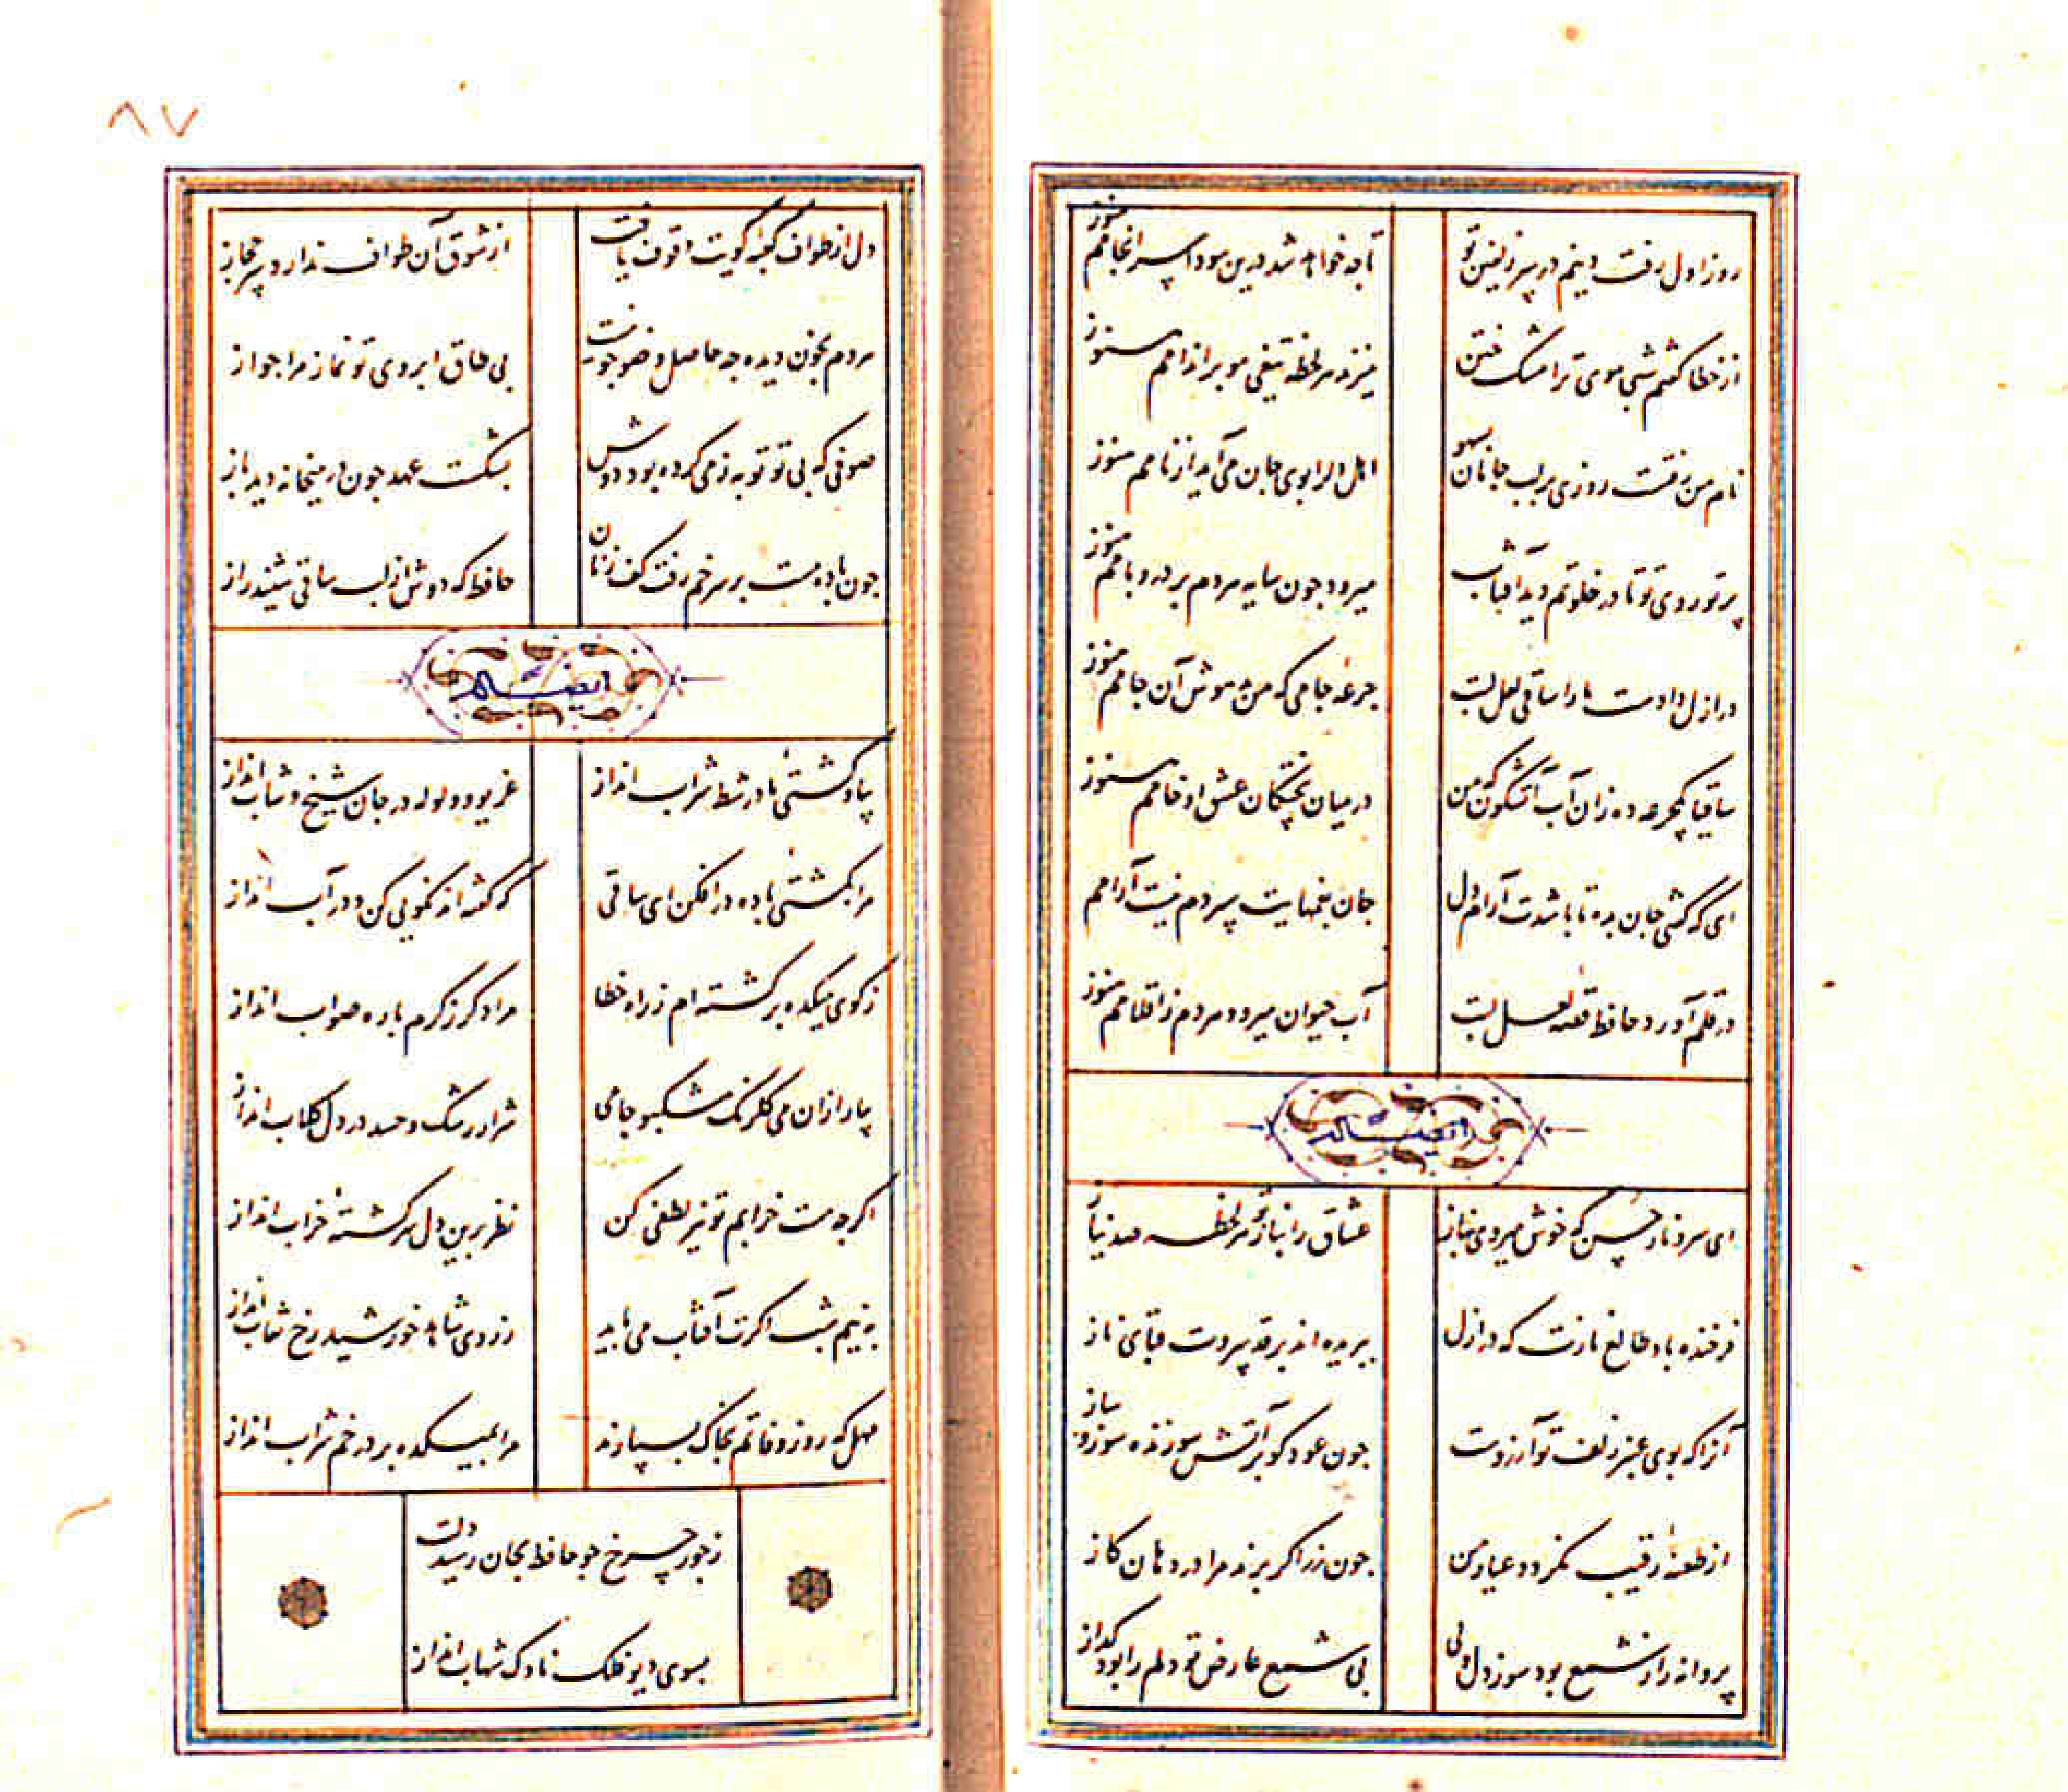 روز اول رفت دینم در سر زلفین تو
تا چه خواهد شد درین سودا سرانجامم هنوز
از خطا گفتم شبی موی ترا مشک ختن
میزند هر لحظه تیغی مو بر اندامم هنوز
نام من رفتست روزی بر لب جانان بسهو
اهل دل را بوی جان می آید از نامم هنوز
پرتو روی تو تا در خلوتم دید آفتاب
میرود چون سایه هر دم بر در و بامم هنوز
در ازل دادست ما را ساقی لعل لبت
جرعه جامی که من مدهوش آن جامم هنوز
ساقیا یکجرعه ده زان آب آتشگون که من
در میان پختگان عشق او خامم هنوز
ای که گفتی جان بده تا باشدت آرام دل
جان بغمهایت سپردم نیست آرامم
در قلم آورد حافظ قصه لعل لبت
آب حیوان میرود هر دم ز اقلامم هنوز
ایضاً له
ای سرو ناز حسن که خوش میروی بناز
عشاق را بناز تو هر لحظه صد نیاز
فرخنده باد طالع نازت که در ازل
ببریده اند بر قد سروت قبای ناز
آنرا که بوی عنبر زلف تو آرزوست
چون عود گو بر آتش سوزنده سوز و ساز
از طعنه رقیب نگردد عیار من
چون زر اگر برند مرا در دهان گاز
پروانه را ز شمع بود سوز دل ولی
بی شمع عارض تو دلم را بود گداز
۸۷
دل از طواف کعبه کویت وقوف یافت
از شوق آن طواف ندارد سر حجاز
هر دم بخون دیده چه حاصل وضو چو نیست
بی طاق ابروی تو نماز مرا جواز
صوفی که بی تو توبه ز می کرده بود دوش
بشکست عهد چون در میخانه دید باز
چون باده مست بر سر خم رفت کف زنان
حافظ که دوش از لب ساقی شنید راز
ایضاً له
بیا و کشتئ ما در شط شراب انداز
غریو و ولوله در جان شیخ و شاب انداز
مرا بکشتئ باده در افکن ای ساقی
که گفته اند نکویی کن و در آب انداز
ز کوی میکده برگشته ام ز راه خطا
مرا دگر ز کرم با ره صواب انداز
بیار از ان می گلرنگ مشکبو جامی
شرار رشک و حسد در دل گلاب انداز
اگرچه مست خرابم تو نیز لطفی کن
نظر برین دل سرگشته خراب انداز
به نیم شب اگرت آفتاب می باید
ز روی شاهد خورشید رخ نقاب انداز
مهل که روز وفاتم بخاک بسپارند
مرا بمیکده بر در خم شراب انداز
ز جور چرخ چو حافظ بجان رسید دلت
بسوی دیو فلک ناوک شهاب انداز